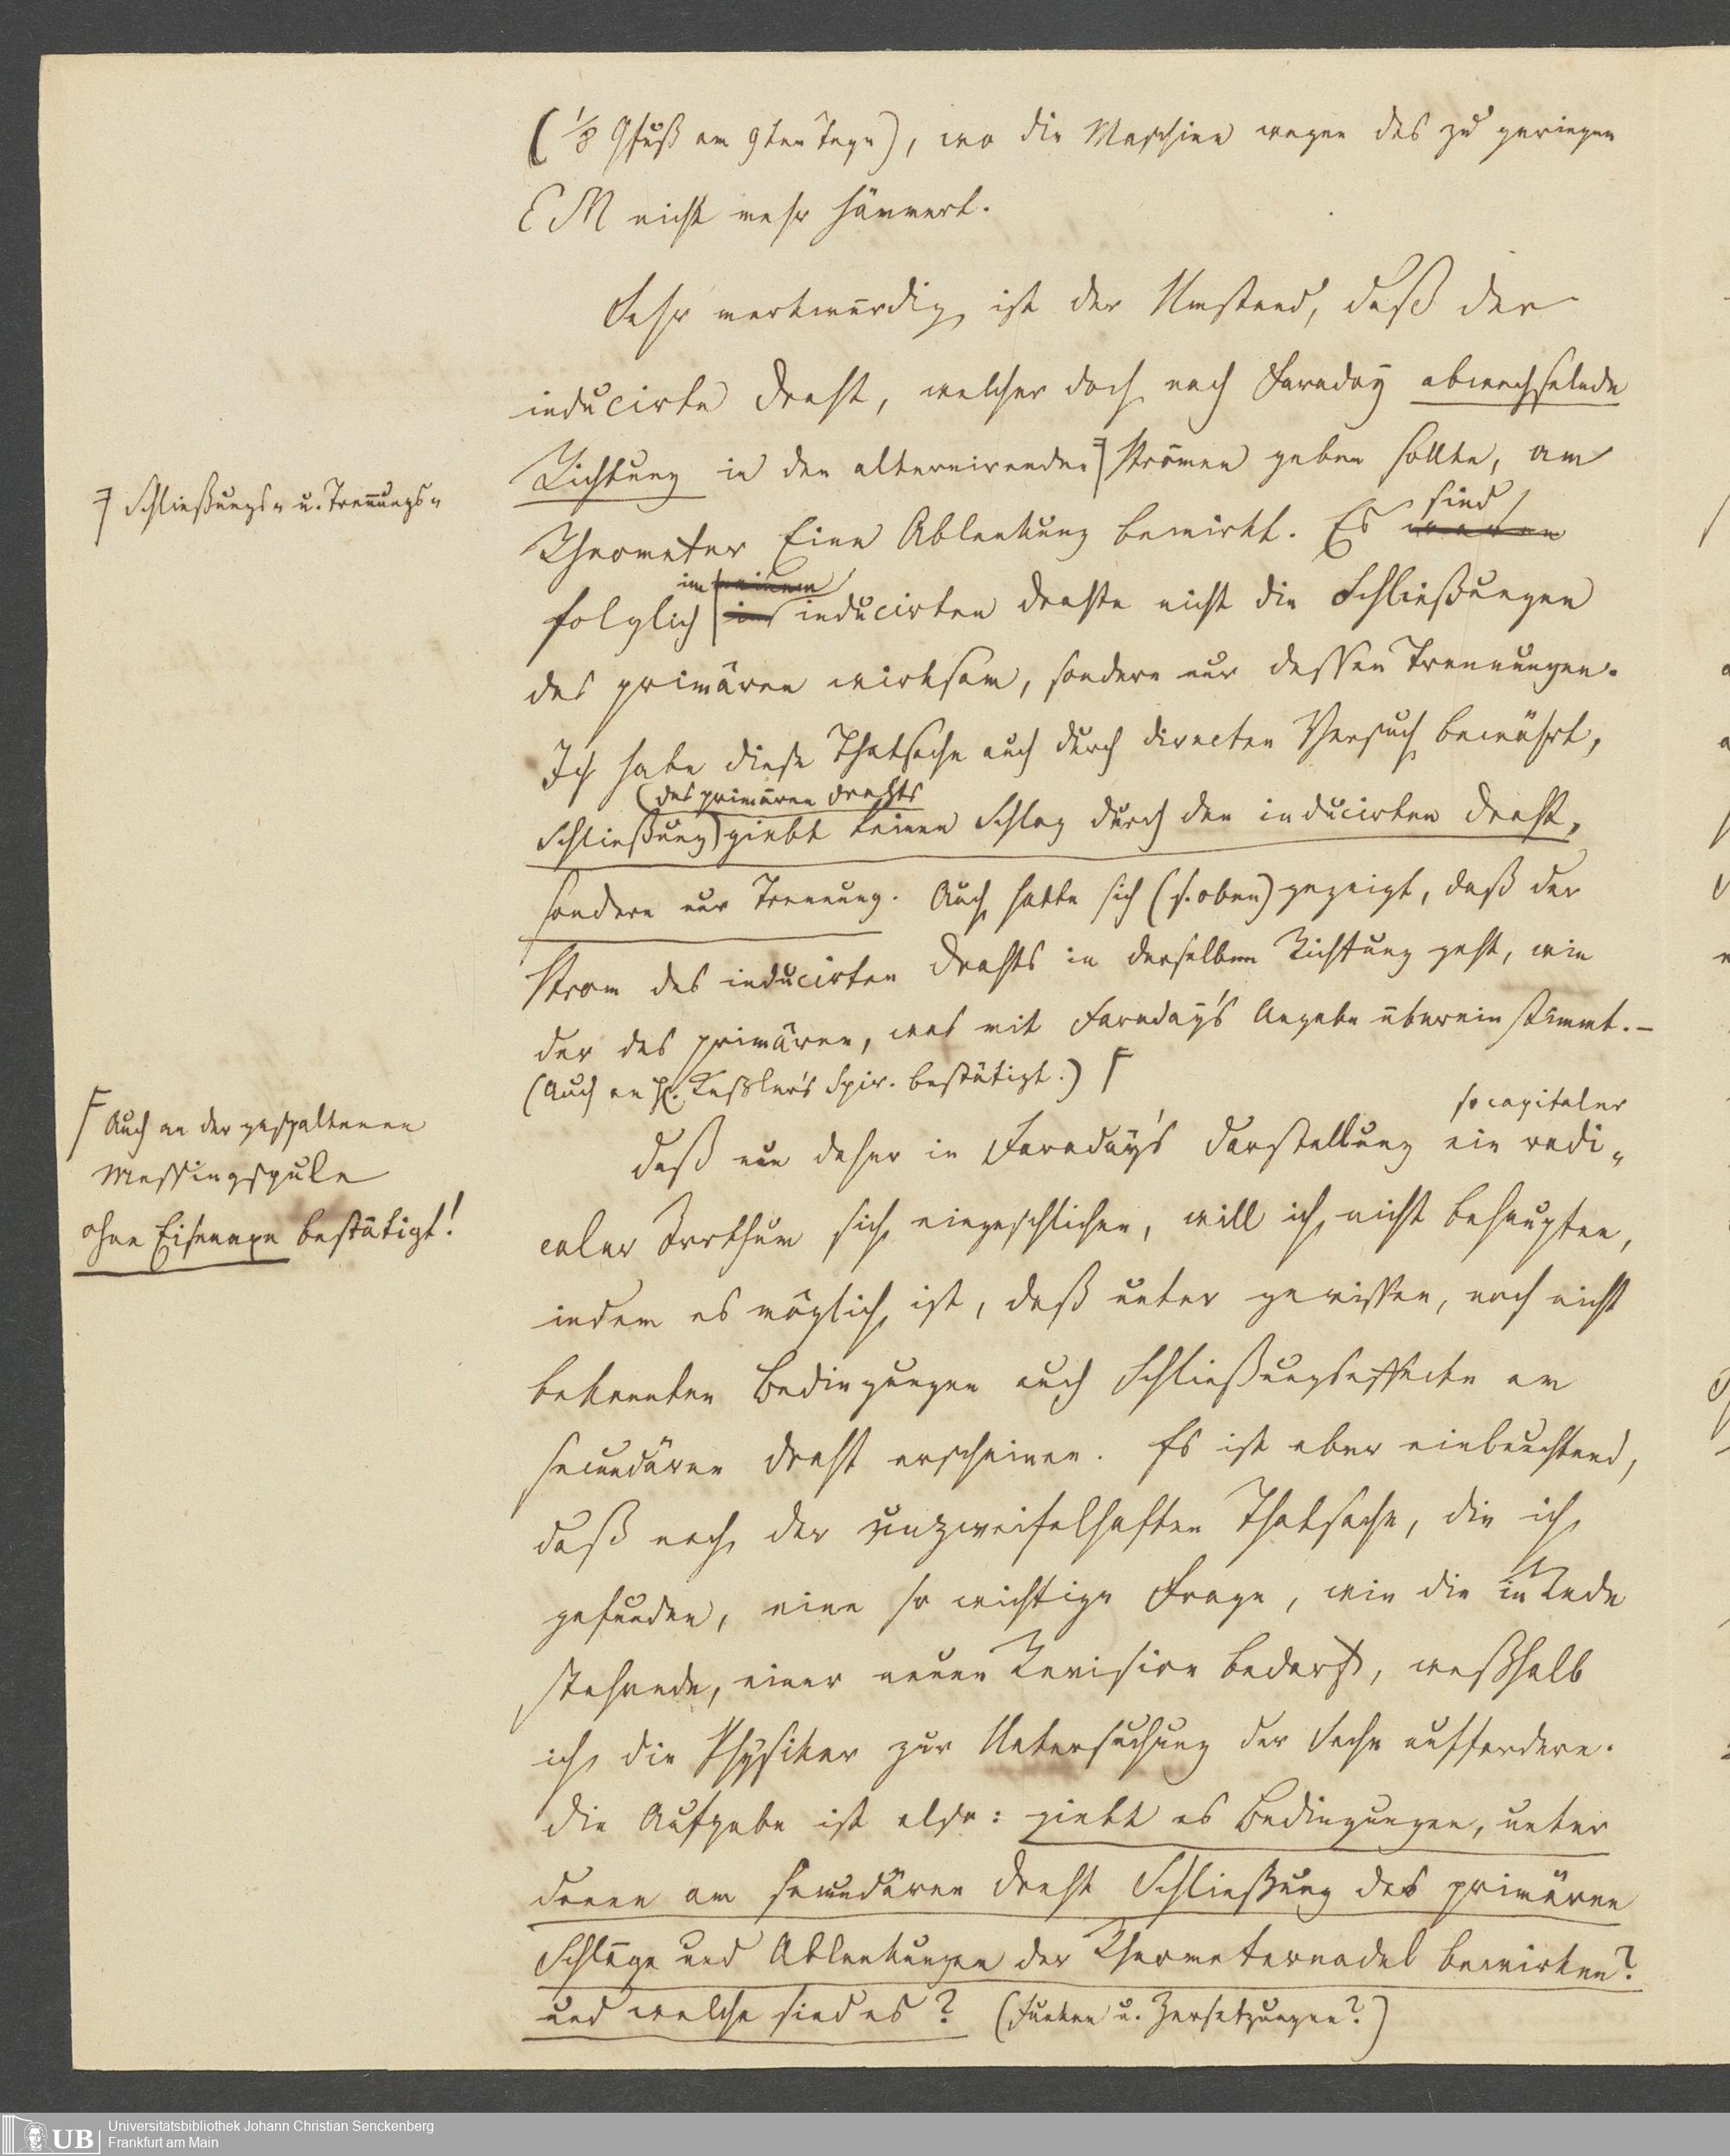 (⅛ Qfuß am 9ten Tage), wo die Maschine wegen des zu geringen
EM nicht mehr hämmert.
Sehr merkwürdig ist der Umstand, daß der
inducirte Draht, welcher doch nach Faraday abwechselnde
Richtung in den alternirenden Strömen geben sollte, am
Schließungs- u. Trennungs-
Rheometer Eine Ablenkung bewirkt. Es waren
sind
folglich in inducirten Drahte nicht die Schließungen
im seinem
des primären wirksam, sondern nur dessen Trennungen.
Ich habe diese Thatsache auch durch directen Versuch bewährt,
(des primären Drahts
Schließung) giebt keinen Schlag durch den inducirten Draht,
sondern nur Trennung. Auch hatte sich (s. oben) gezeigt, daß der
Strom des inducirten Drahts in derselben Richtung geht, wie
der des primären, was mit Faraday's Angabe übereinstimmt.–
(Auch an H. Keßler's Spir. bestätigt.)
Auch an der gespaltenen
Messingspule
ohne Eisenaxe bestätigt!
so capitaler
Daß nun daher in Faraday's Darstellung ein radi-
caler Irrthum sich eingeschlichen, will ich nicht behaupten,
indem es möglich ist, daß unter gewissen, noch nicht
bekannten Bedingungen auch Schließungseffecte am
secundären Draht erscheinen. Es ist aber einleuchtend,
daß nach der unzweifelhaften Thatsache, die ich
gefunden, eine so wichtige Frage, wie die in Rede
stehende, einer neuen Revision bedarf, weßhalb
ich die Physiker zur Untersuchung der Sache auffordere.
Die Aufgabe ist also: giebt es Bedingungen, unter
denen am secundären Draht Schließung des primären
Schläge und Ablenkungen der Rheometernadel bewirken?
und welche sind es? (Funken u. Zersetzungen?)
Universitätsbibliothek Johann Christian Senckenberg
Frankfurt am Main
UB